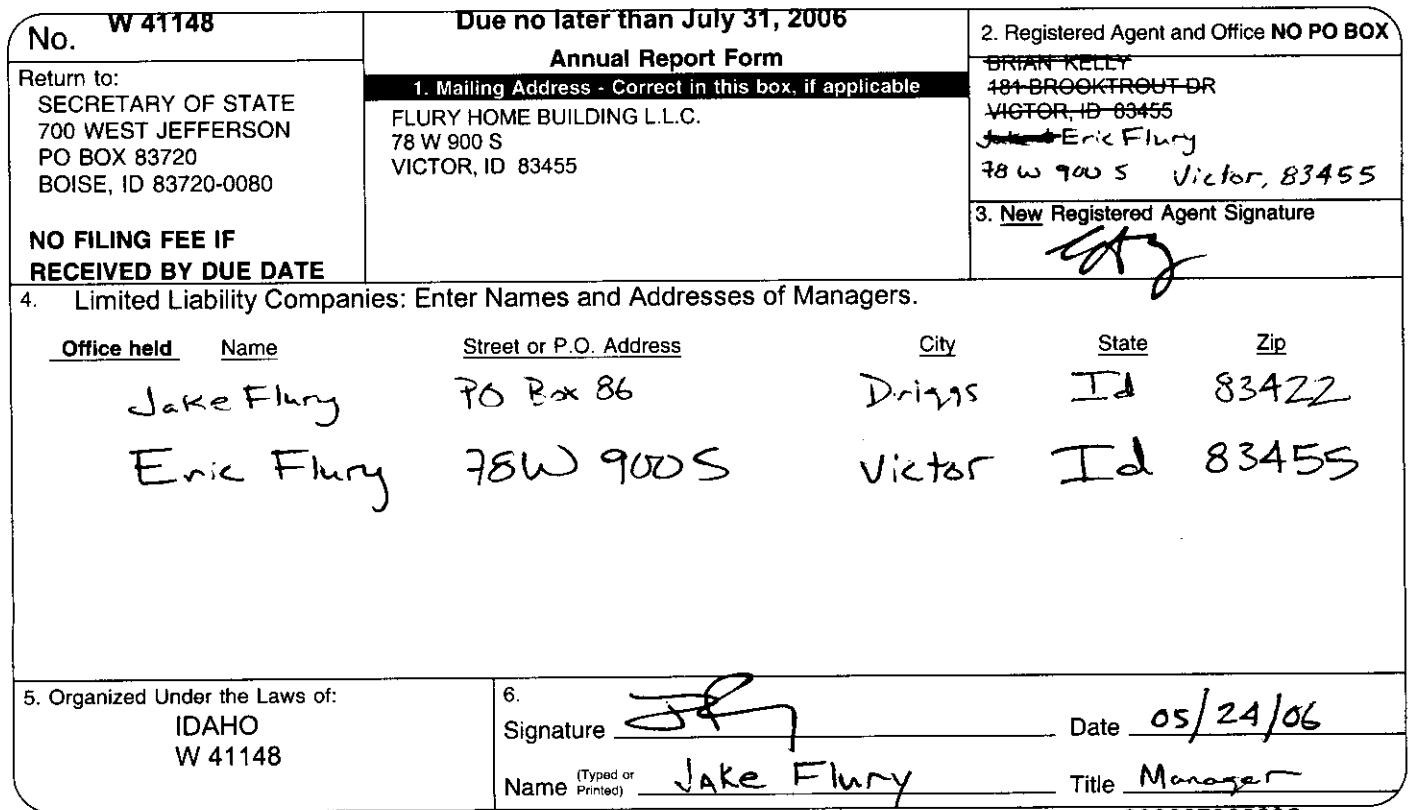 No. W 41148
Return to:
SECRETARY OF STATE
700 WEST JEFFERSON
PO BOX 83720
BOISE, ID 83720-0080
NO FILING FEE IF
RECEIVED BY DUE DATE
Due no later than July 31, 2006
Annual Report Form
1. Mailing Address - Correct in this box, if applicable
FLURY HOME BUILDING L.L.C.
78 W 900 S
VICTOR, ID 83455
2. Registered Agent and Office NO PO BOX
BRIAN KELLY
181 BROOKTROUT DR
VICTOR, ID 83455
Eric Flury
78 W 900 S Victor, 83455
3. New Registered Agent Signature
4. Limited Liability Companies: Enter Names and Addresses of Managers.
Office held Name Street or P.O. Address City State Zip
Jake Flury PO Box 86 Driggs Id 83422
Eric Flury 78W 900 S Victor Id 83455
5. Organized Under the Laws of:
IDAHO
W 41148
6.
Signature Date 05/24/06
Name (Typed or Printed) JAKe Flury Title Manager